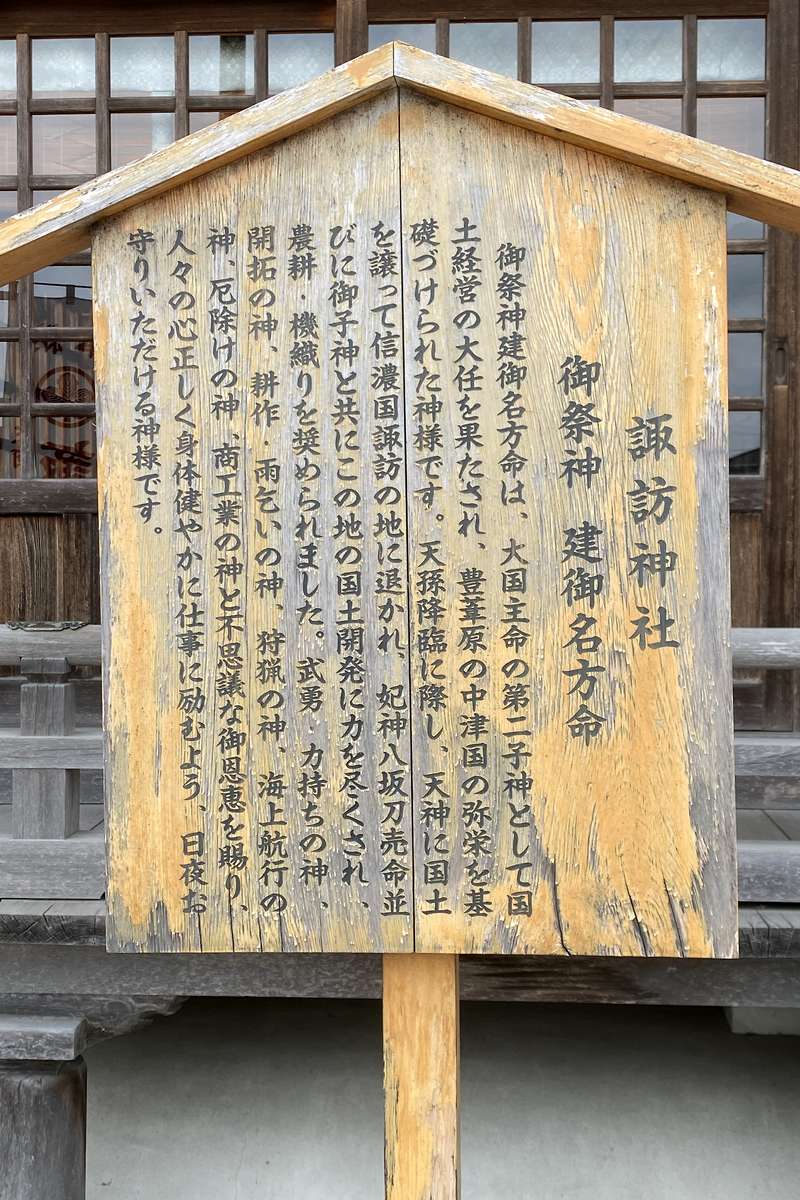 諏訪神社
御祭神　建御名方命
御祭神建御名方命は、大国主命の第二子神として国
土経営の大任を果たされ、豊葦原の中津国の弥栄を基
礎づけられた神様です。天孫降臨に際し、天神に国土
を譲って信濃国諏訪の地に退かれ、妃神八坂刀売命並
びに御子神と共にこの地の国土開発に力を尽くされ、
農耕・機織りを奨められました。武勇・力持ちの神、
開拓の神、耕作・雨乞いの神、狩猟の神、海上航行の
神、厄除けの神、商工業の神と不思議な御恩恵を賜り、
人々の心正しく身体健やかに仕事に励むよう、日夜お
守りいただける神様です。